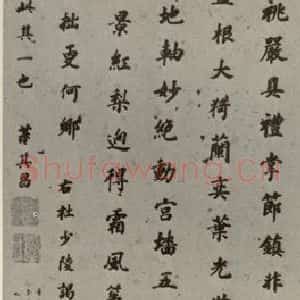 祧嚴具禮掌節鎮非
盤根大猗蘭奕葉光
地軸妙絕動宮墻五
景紅梨迥得霜風箏
拙更何鄉 右杜少陵謁
其一也 董其昌
Shufawang.Cn